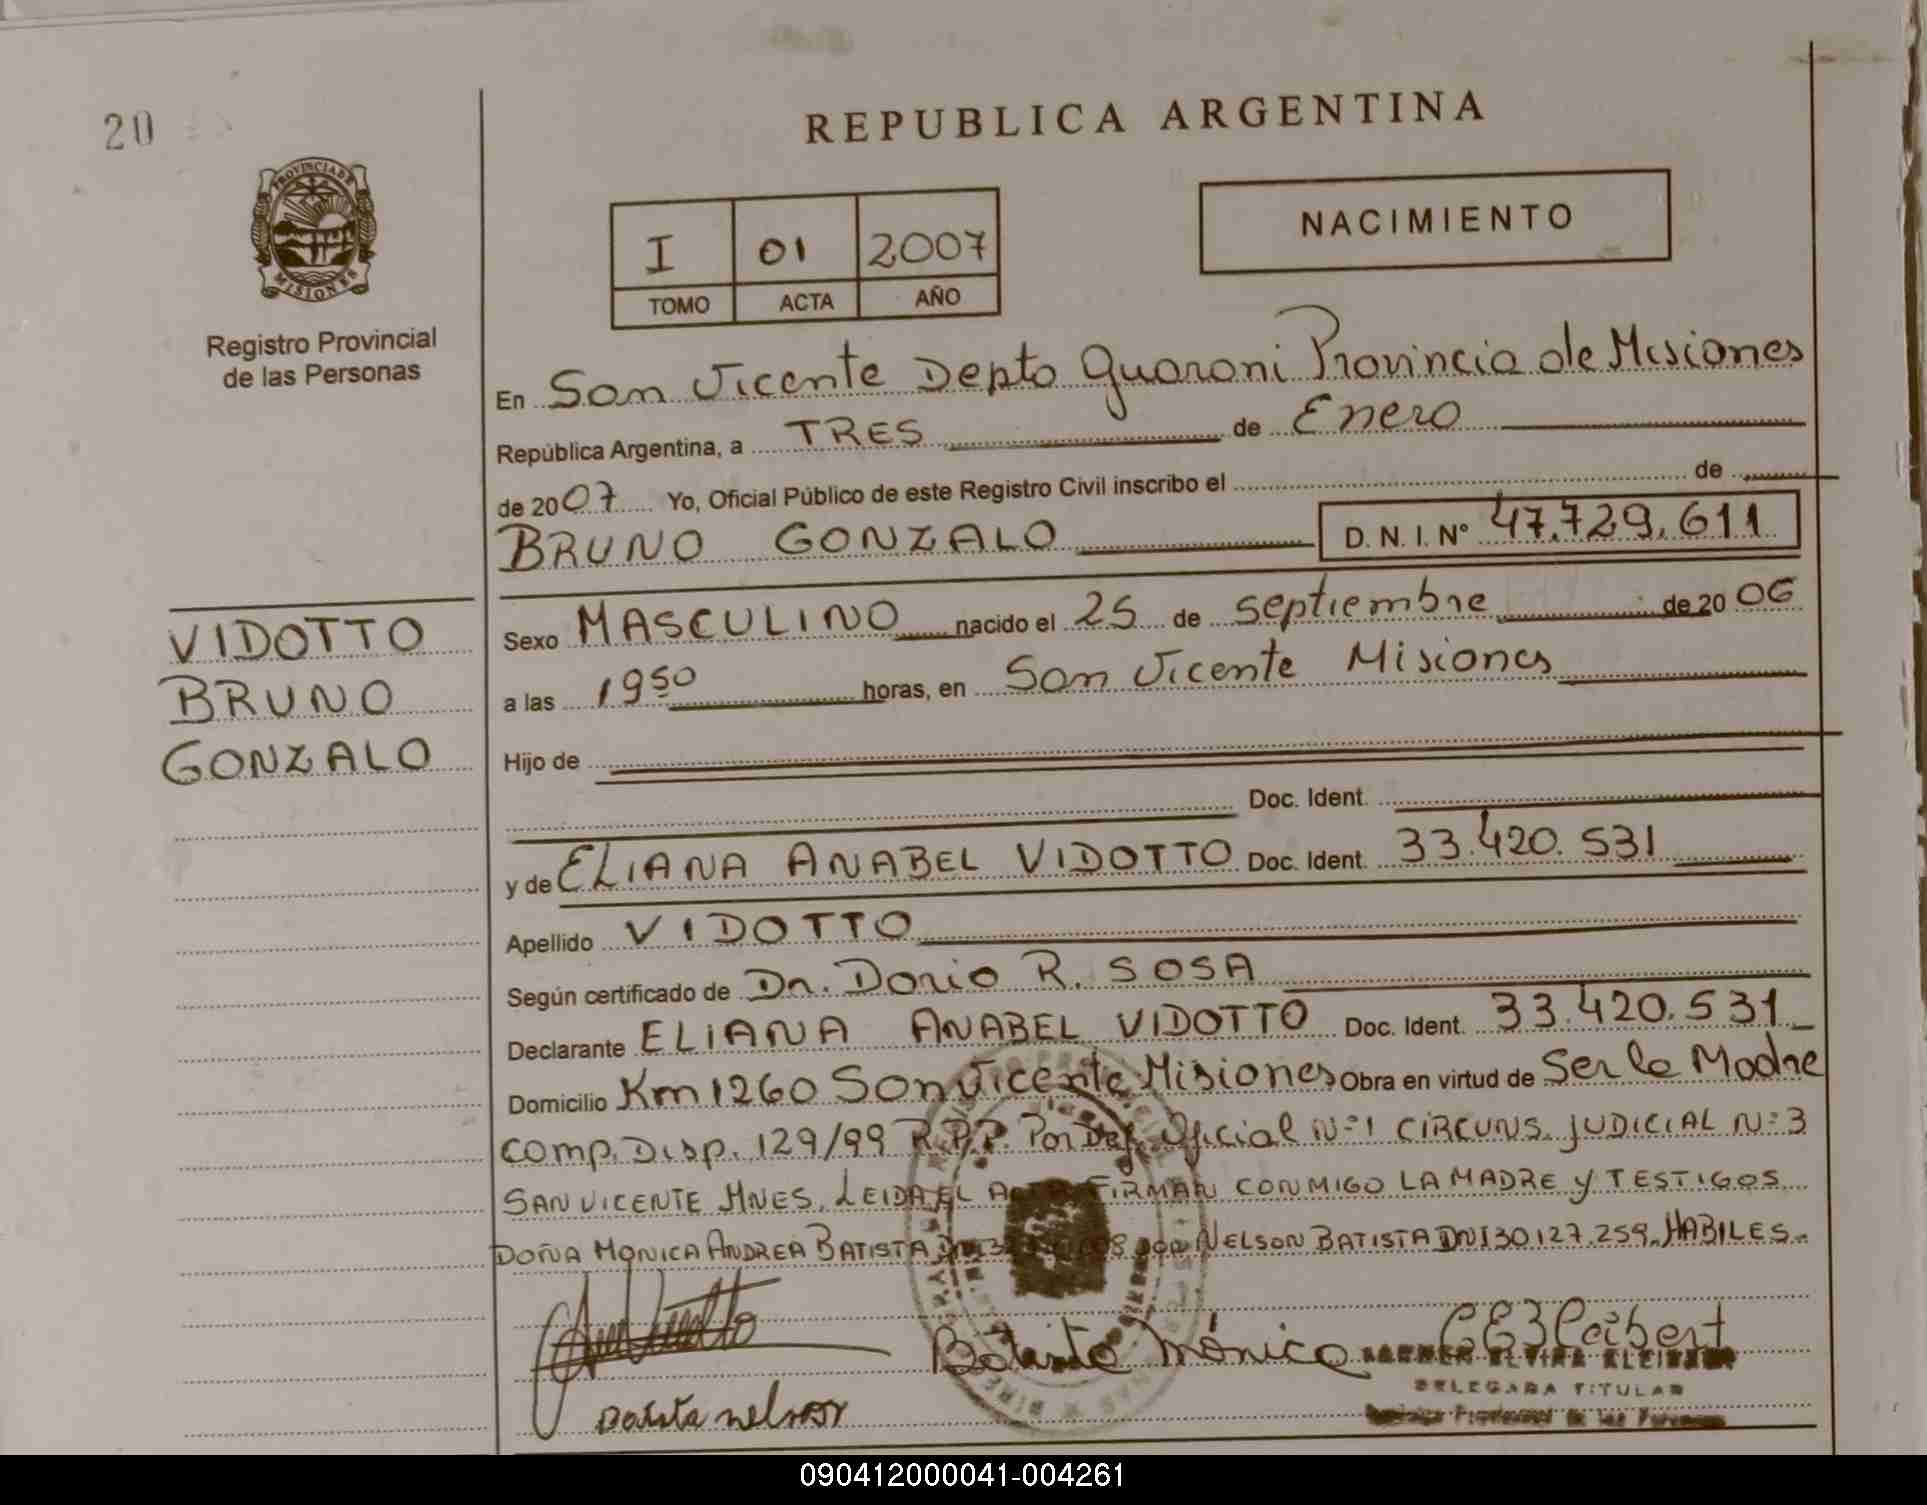 20
REPUBLICA ARGENTINA
PROVINCIA DE
MISIONES
Registro Provincial
de las Personas
NACIMIENTO
I 01 2007
TOMO ACTA AÑO
En San Vicente Depto Guarani Provincia de Misiones
República Argentina, a TRES de Enero
de 2007 Yo, Oficial Público de este Registro Civil inscribo el de
BRUNO GONZALO D. N. I. Nº 47.729.611
VIDOTTO
BRUNO
GONZALO
Sexo MASCULINO nacido el 25 de septiembre de 2006
a las 19 50 horas, en San Vicente Misiones
Hijo de
Doc. Ident.
y de ELIANA ANABEL VIDOTTO Doc. Ident. 33.420.531
Apellido VIDOTTO
Según certificado de Dr. Dario R. SOSA
Declarante ELIANA ANABEL VIDOTTO Doc. Ident. 33.420.531
Domicilio Km 1260 San Vicente Misiones Obra en virtud de Ser la Madre
comp. Disp. 129/99 R.P.P. Por Def. Oficial Nº1 CIRCUNS. JUDICIAL Nº 3
SAN VICENTE MNES. LEIDA EL FIRMAN CONMIGO LA MADRE Y TESTIGOS
DOÑA MONICA ANDREA BATISTA NELSON BATISTA DNI 30.127.259. HABILES.
Mónica
DELEGADA TITULAR
090412000041-004261